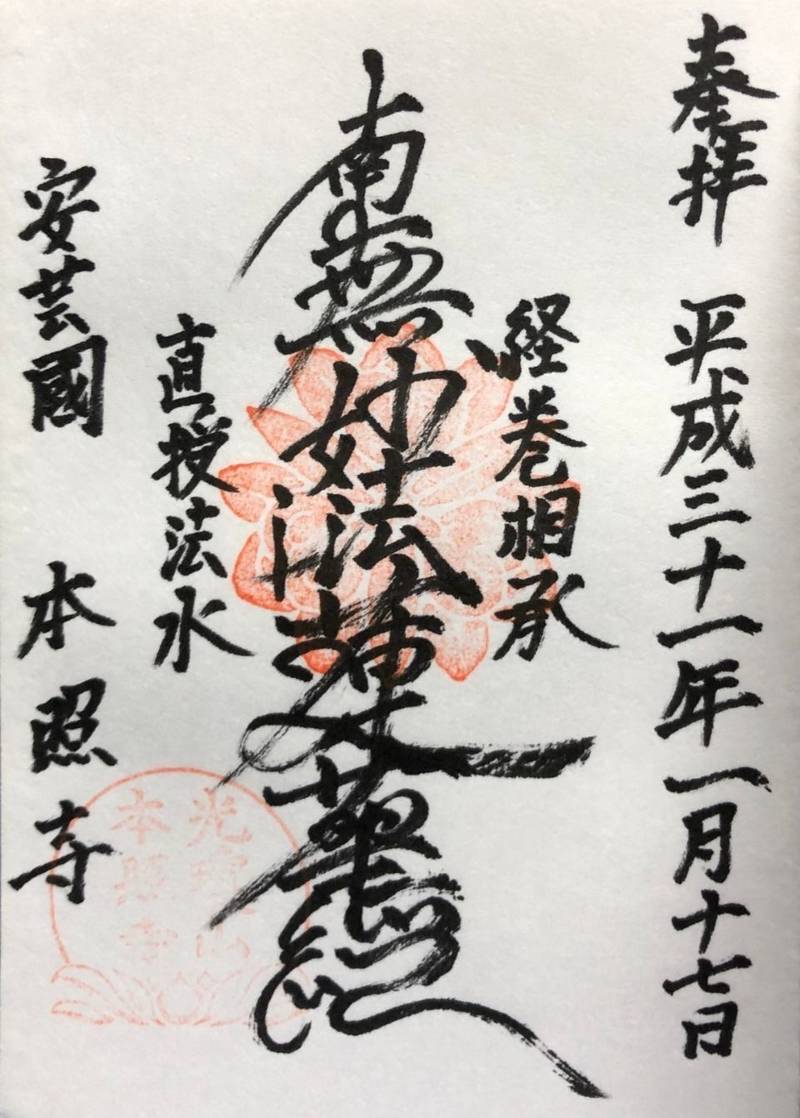 奉拝 平成三十一年一月十七日
経巻相承
南無妙法蓮華経
直授法水
安芸國 本照寺
本照寺